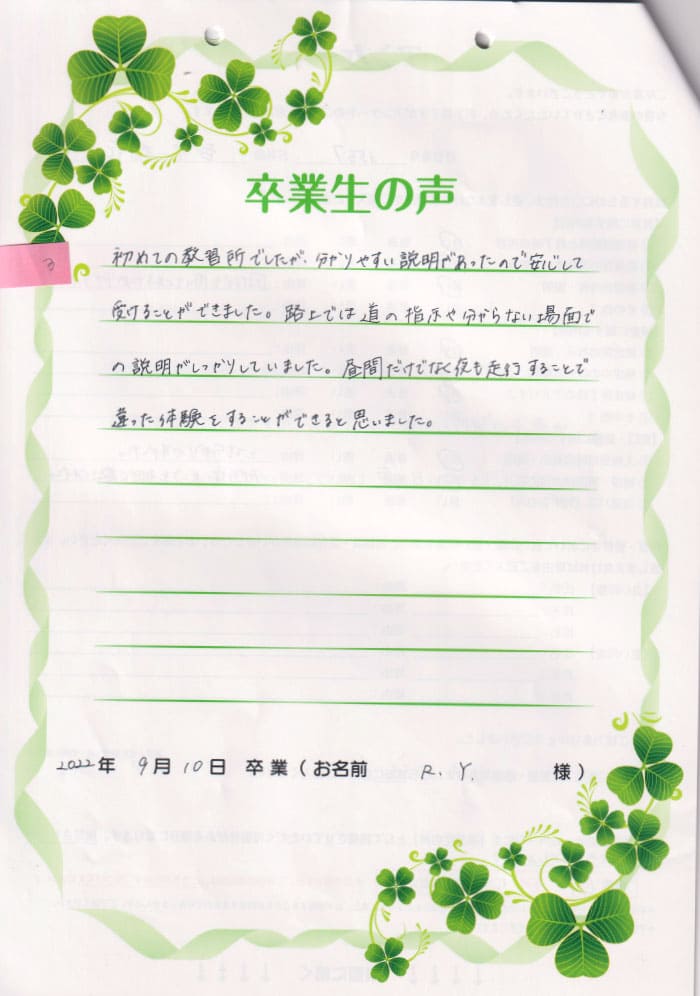 卒業生の声
初めての教習所でしたが、分かりやすい説明があったので安心して
受けることができました。路上では道の指示や分からない場面で
の説明がしっかりしていました。昼間だけでなく夜も走行することで
違った体験をすることができると思いました。
2022年 9月10日 卒業(お名前 R.Y 様)